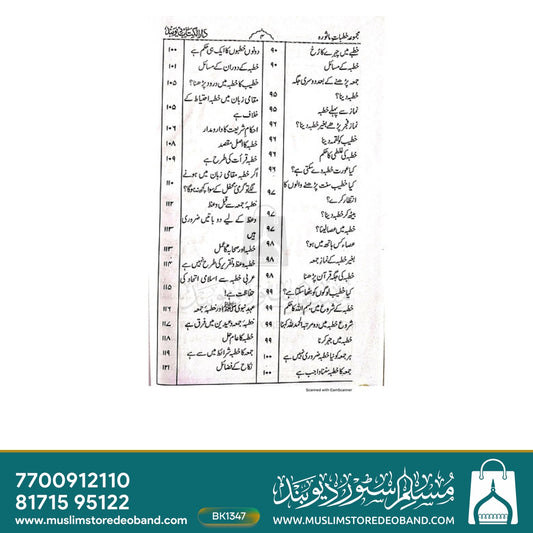 مجموعہ خطباتِ ماثورہ
۴
دارالکتاب دیوبند
خطبے میں چہرے کا رُخ ۹۰
خطبہ کے مسائل ۹۰
جمعہ پڑھنے کے بعد دوسری جگہ
خطبہ دینا؟ ۹۵
نماز سے پہلے خطبہ ۹۵
نماز فجر پڑھے بغیر خطبہ دینا؟ ۹۶
خطیب کو لقمہ دینا ۹۶
خطبہ کی غلطی کا حکم ۹۶
کیا عورت خطبہ دے سکتی ہے؟ ۹۶
کیا خطیب سنت پڑھنے والوں کا
انتظار کرے؟ ۹۷
بیٹھ کر خطبہ دینا؟ ۹۷
خطبہ میں عصا لینا؟ ۹۷
عصاء کس ہاتھ میں ہو؟ ۹۸
بغیر خطبہ کے نماز جمعہ ۹۸
خطبہ کی جگہ قرآن پڑھنا ۹۸
کیا خطیب لوگوں کو بٹھا سکتا ہے؟ ۹۹
خطبہ کے شروع میں بسم اللہ کا حکم ۹۹
شروع خطبہ میں دو مرتبہ الحمد للہ کہنا ۹۹
خطبہ میں جہر کرنا ۹۹
ہر جمعہ کو نیا خطبہ ضروری نہیں ہے ۱۰۰
جمعہ کا خطبہ سننا واجب ہے ۱۰۰
دونوں خطبوں کا ایک ہی حکم ہے ۱۰۰
خطبہ کے دوران کے مسائل ۱۰۱
خطیب کا خطبہ میں درود پڑھنا؟ ۱۰۵
مقامی زبان میں خطبہ احتیاط کے
خلاف ہے ۱۰۵
احکام شریعت کا دار و مدار ۱۰۶
خطبہ کا اصل مقصد ۱۰۸
خطبہ قرأت کی طرح ہے ۱۰۹
اگر خطبہ مقامی زبان میں ہونے
لگے تو گرئ محفل کے سوا کچھ نہ ہوگا؟ ۱۱۰
خطبۂ جمعہ سے قبل وعظ ۱۱۲
وعظ کے لیے دو باتیں ضروری
ہیں ۱۱۳
خطبہ اور صحابہؓ کا عمل ۱۱۳
خطبہ وعظ و تقریر کی طرح نہیں ہے ۱۱۴
عربی خطبہ سے اسلامی اتحاد کی
حفاظت ہے! ۱۱۵
عہد نبوی ﷺ اور خطبۂ جمعہ
خطبہ جمعہ و عیدین میں فرق ہے ۱۱۷
خطبہ کا عام حل ۱۱۸
جمعہ کا خطبہ شرائط میں سے ہے ۱۱۹
نکاح کے فضائل ۱۲۱
Scanned with CamScanner
7700912110
81715 95122
www.muslimstoredeoband.com
BK1347
مسلم سٹور دیوبند
WWW.MUSLIMSTOREDEOBAND.COM